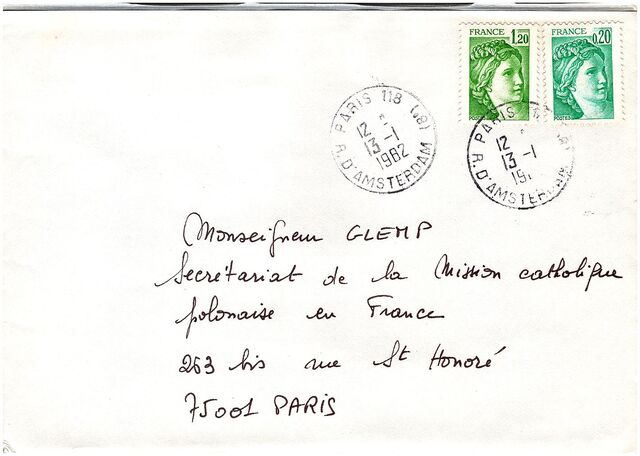 FRANCE 1,20
POSTES
FRANCE 0,20
POSTES
PARIS 118 (8)
12 *
13 -1
1982
R. D'AMSTERDAM
PARIS
12 *
13 -1
R. D'AMSTERDAM
Monseigneur GLEMP
Secrétariat de la Mission catholique
polonaise en France
263 bis rue St Honoré
75001 PARIS